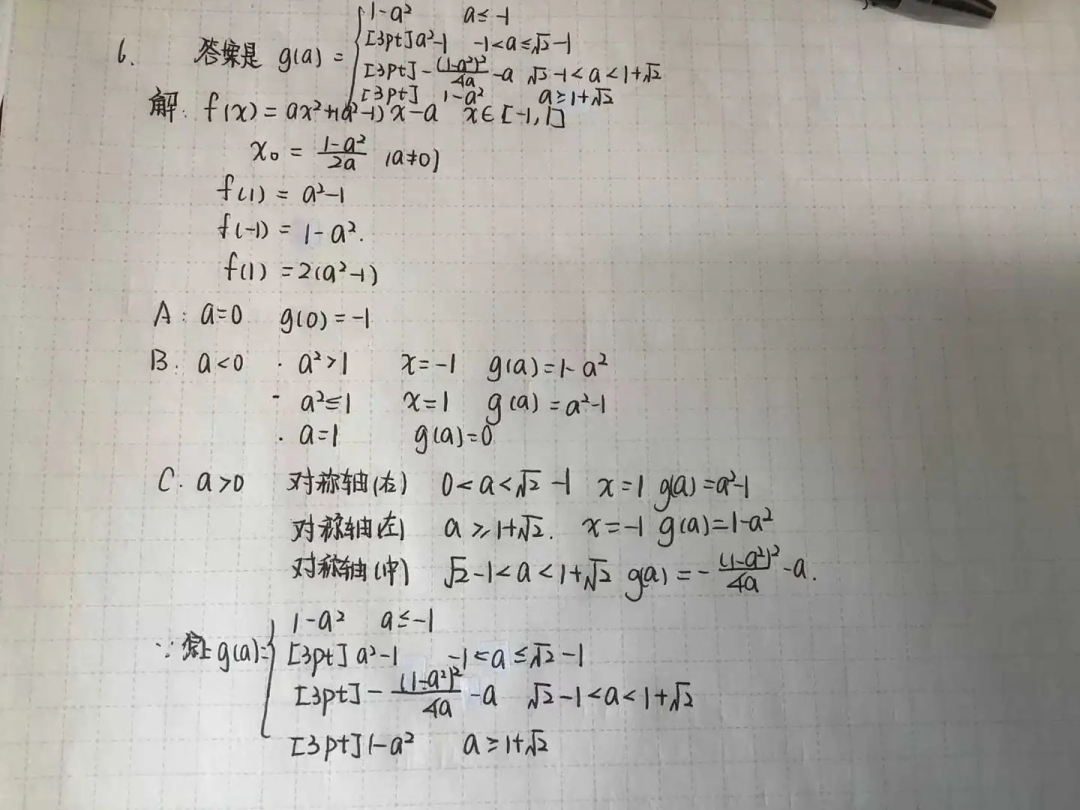 6. 答案是 g(a) = { 1-a² a≤-1
[3pt]a²-1 -1<a≤√2-1
[3pt]-(1-a²)²/4a -a √2-1<a<1+√2
[3pt] 1-a² a≥1+√2
解: f(x) = ax²+(a²-1)x-a x∈[-1,1]
x₀ = 1-a²/2a (a≠0)
f(1) = a²-1
f(-1) = 1-a².
f(1) = 2(a²-1)
A: a=0 g(0)=-1
B. a<0 · a²>1 x=-1 g(a)=1-a²
- a²≤1 x=1 g(a)=a²-1
· a=1 g(a)=0
C. a>0 对称轴(右) 0<a<√2-1 x=1 g(a)=a²-1
对称轴(左) a≥1+√2. x=-1 g(a)=1-a²
对称轴(中) √2-1<a<1+√2 g(a)=-(1-a²)²/4a -a.
∵ 综上 g(a)={ 1-a² a≤-1
[3pt] a²-1 -1<a≤√2-1
[3pt]-(1-a²)²/4a -a √2-1<a<1+√2
[3pt]1-a² a≥1+√2